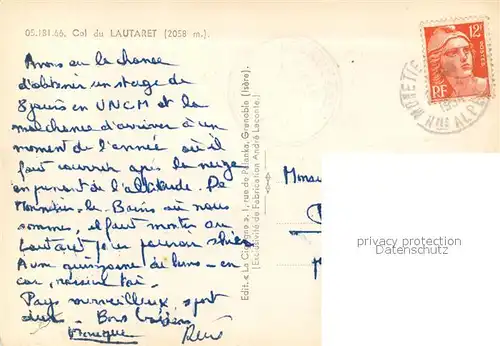 05.181.66. Col du LAUTARET (2058 m.).
Avons eu la chance
d'obtenir un stage de
8 jours en UNCM et la
malchance d'arriver à un
moment de l'année où il
faut courrir après la neige
en prenant de l'altitude. De
Monetier-les-Bains où nous
sommes, il faut monter au
Lautaret pour pouvoir skier
A une quinzaine de kms - en
car, rassure toi.
Pays merveilleux, sport
Bons baisers
Monique
René
Edit. « La Cigogne », 1, rue de Palanka, Grenoble (Isère).
(Exclusivité de Fabrication André Leconte.)
12F
POSTES
RF
HTES ALPES
privacy protection
Datenschutz